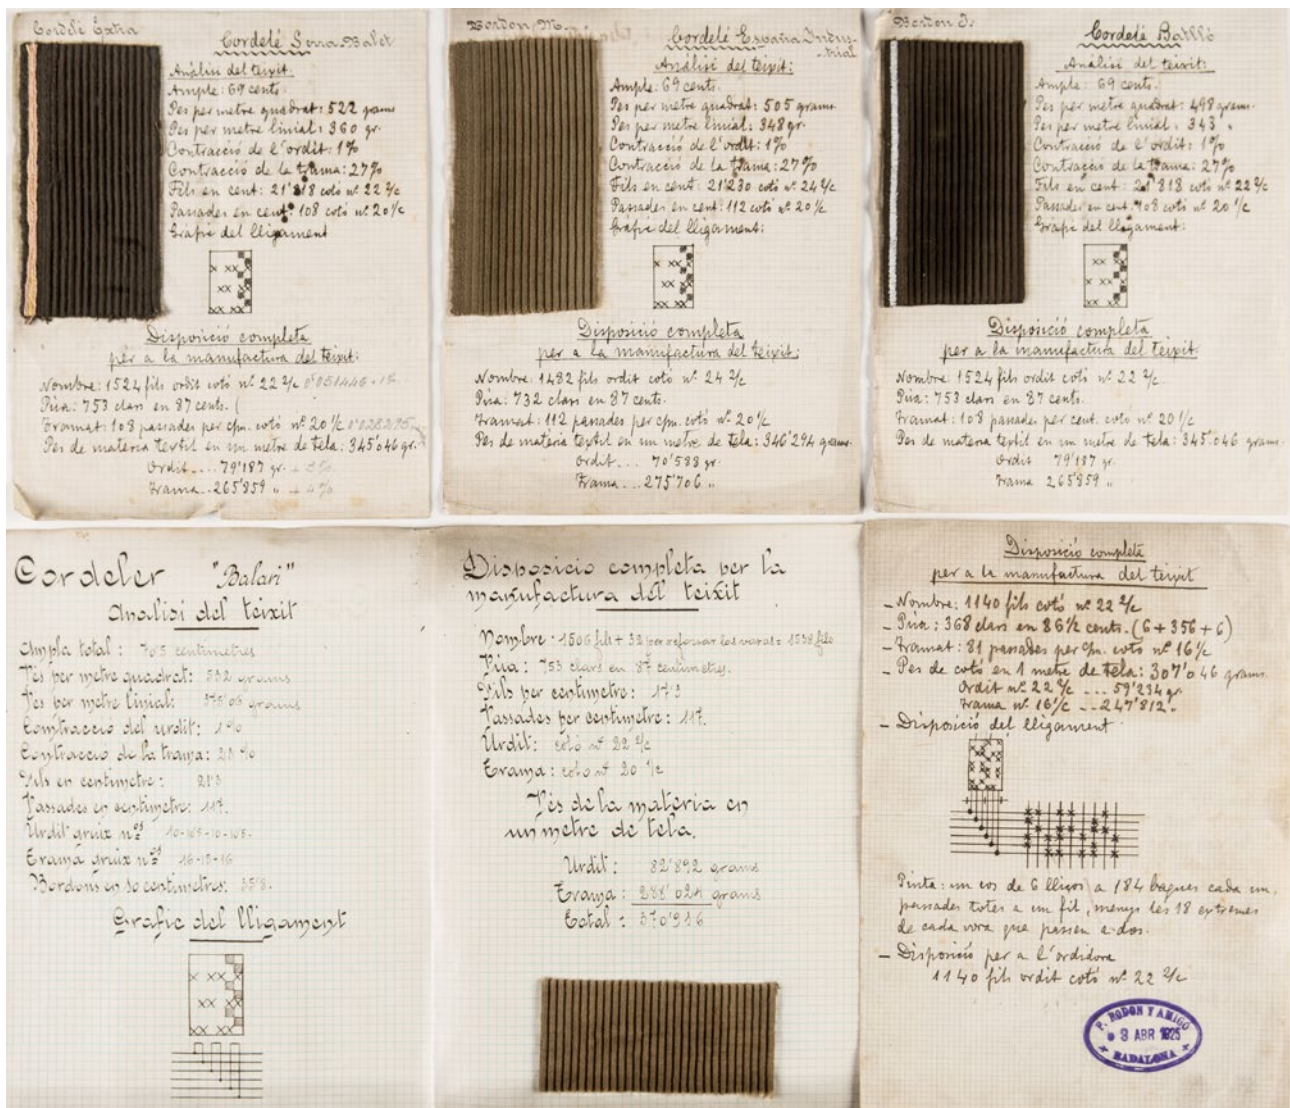 Cordelé Extra
Cordelé Serra-Balet
Anàlisi del teixit.
Ample: 69 cents.
Pes per metre quadrat: 522 grams
Pes per metre linial: 360 gr.
Contracció de l'ordit: 1%
Contracció de la trama: 27%
Fils en cent: 21'818 cotó nº 22 2/c
Passades en cent: 108 cotó nº 20 1/c
Gràfic del lligament
Disposició completa
per a la manufactura del teixit:
Nombre: 1524 fils ordit cotó nº 22 2/c 0'051446 + 1%
Pua: 753 clars en 87 cents.
Tramat: 108 passades per c/m. cotó nº 20 1/c
Pes de materia textil en un metre de tela: 345'046 gr.
Ordit .... 79'187 gr. + 3%
Trama .. 265'859 " + 4%
Bordon M.
Cordelé España Indus-
trial
Anàlisi del teixit:
Ample: 69 cents.
Pes per metre quadrat: 505 grams.
Pes per metre linial: 348 gr.
Contracció de l'ordit: 1%
Contracció de la trama: 27%
Fils en cent: 21'230 cotó nº 24 2/c
Passades en cent: 112 cotó nº 20 1/c
Gràfic del lligament:
Disposició completa
per a la manufactura del teixit:
Nombre: 1482 fils ordit cotó nº 24 2/c
Pua: 732 clars en 87 cents.
Tramest: 112 passades per c/m. cotó nº 20 1/c
Pes de matèria textil en un metre de tela: 346'294 grams.
Ordit ... 70'588 gr.
Trama ... 275'706 "
Bordon
Cordelé Batlló
Anàlisi del teixit:
Ample: 69 cents.
Pes per metre quadrat: 498 grams.
Pes per metre linial: 343 "
Contracció de l'ordit: 1%
Contracció de la trama: 27%
Fils en cent: 21'818 cotó nº 22 2/c
Passades en cent. 108 cotó nº 20 1/c
Gràfic del lligament:
Disposició completa
per a la manufactura del teixit.
Nombre: 1524 fils ordit cotó nº 22 2/c
Pua: 753 clars en 87 cents.
Tramat: 108 passades per cent. cotó nº 20 1/c
Pes de materia textil en un metre de tela: 345.046 grams.
Ordit 79'187 gr.
Trama 265'859 "
Cordeler "Balari"
Analisi del teixit
Ampla total: 70'5 centimetres
Pés per metre quadrat: 532 grams
Pes per metre linial: grams
Contracció del urdit: 1%
Contracció de la trama: %
Fils en centimetre: 21'3
Passades en centimetre: 117.
Urdit gruix nºs 10-10'5-10-10'5.
Trama gruix nºs 16-15-16
Bordons en 10 centimetres: 35'8.
Grafic del lligament
Disposicio completa per la
manufactura del teixit
Nombre: 1506 fils + 32 per reforsar les voras = 1538 fils
Pua: 753 clars en 87 centimetres.
Fils per centimetre: 17'3
Passades per centimetre: 117.
Urdit: cotó nº 22 2/c
Trama: cotó nº 20 1/c
Pés de la materia en
un metre de tela.
Urdit: 82'892 grams
Trama: 288'024 grams
Total: 370'916
Disposició completa
per a la manufactura del teixit
- Nombre: 1140 fils cotó nº 22 2/c
- Pua: 368 clars en 86 1/2 cents. (6+356+6)
- Tramat: 81 passades per c/m. cotó nº 16 1/c
- Pes de cotó en 1 metre de tela: 307'046 grams.
Ordit nº 22 2/c ... 59'234 gr.
Trama nº 16 1/c .. 247'812 "
- Disposició del lligament
Pinta: un cos de 6 lliços a 184 bagues cada un,
passades totes a un fil, menys les 18 extremes
de cada vora que passen a dos.
- Disposició per a l'ordidora
1140 fils ordit cotó nº 22 2/c
P. RODON Y AMIGÓ
3 ABR 1925
BADALONA